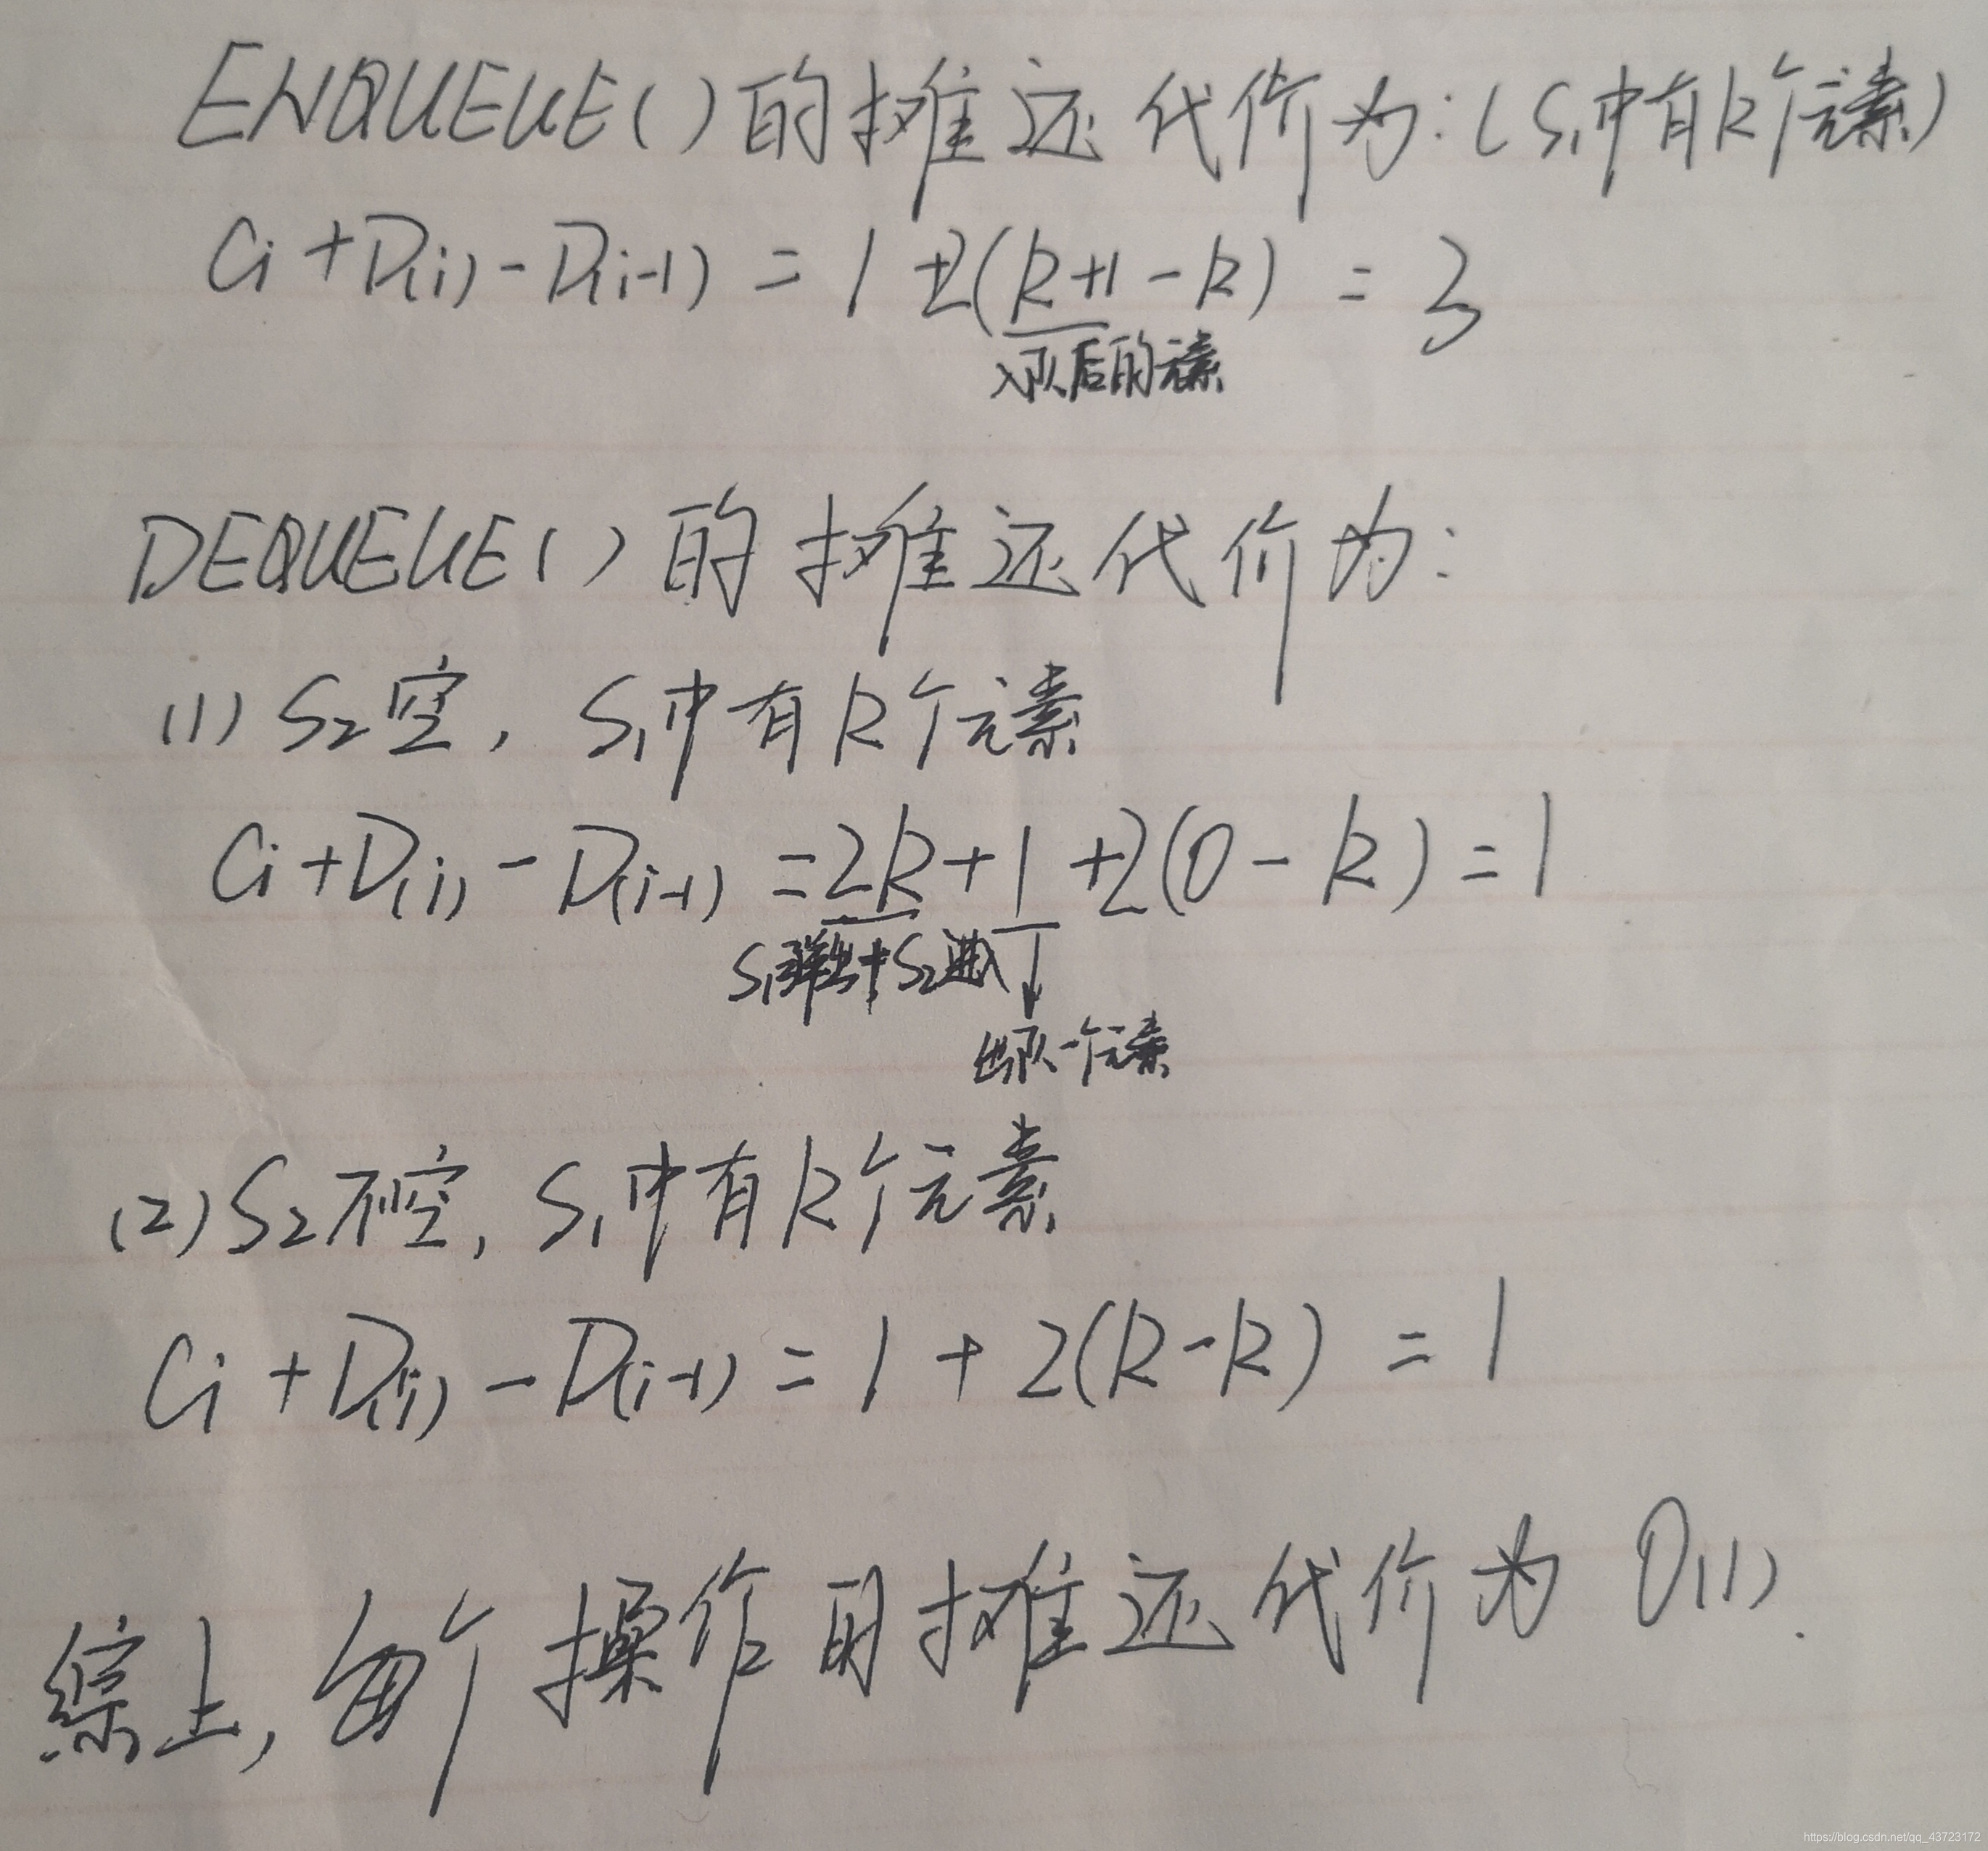 ENQUEUE()的摊还代价为:(S₁中有k个元素)
Ci+D(i)-D(i-1) = 1+2(k+1-k) = 3
入队后的元素
DEQUEUE()的摊还代价为:
(1) S₂空, S₁中有k个元素
Ci+D(i)-D(i-1) =2k+1+2(0-k)=1
S₁弹出+S₂进入
出队一个元素
(2) S₂不空, S₁中有k个元素
Ci+D(i)-D(i-1) = 1+2(k-k) = 1
综上,每个操作的摊还代价为O(1).
https://blog.csdn.net/qq_43723172